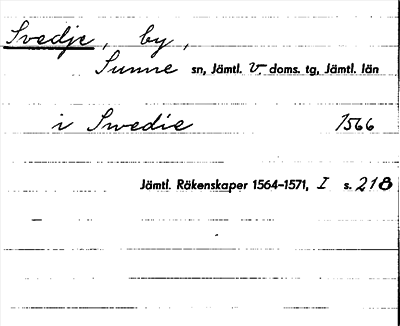 Svedje, by,
Sunne sn, Jämtl. v. doms. tg, Jämtl. län
i Swedie 1566
Jämtl. Räkenskaper 1564-1571, I s. 218